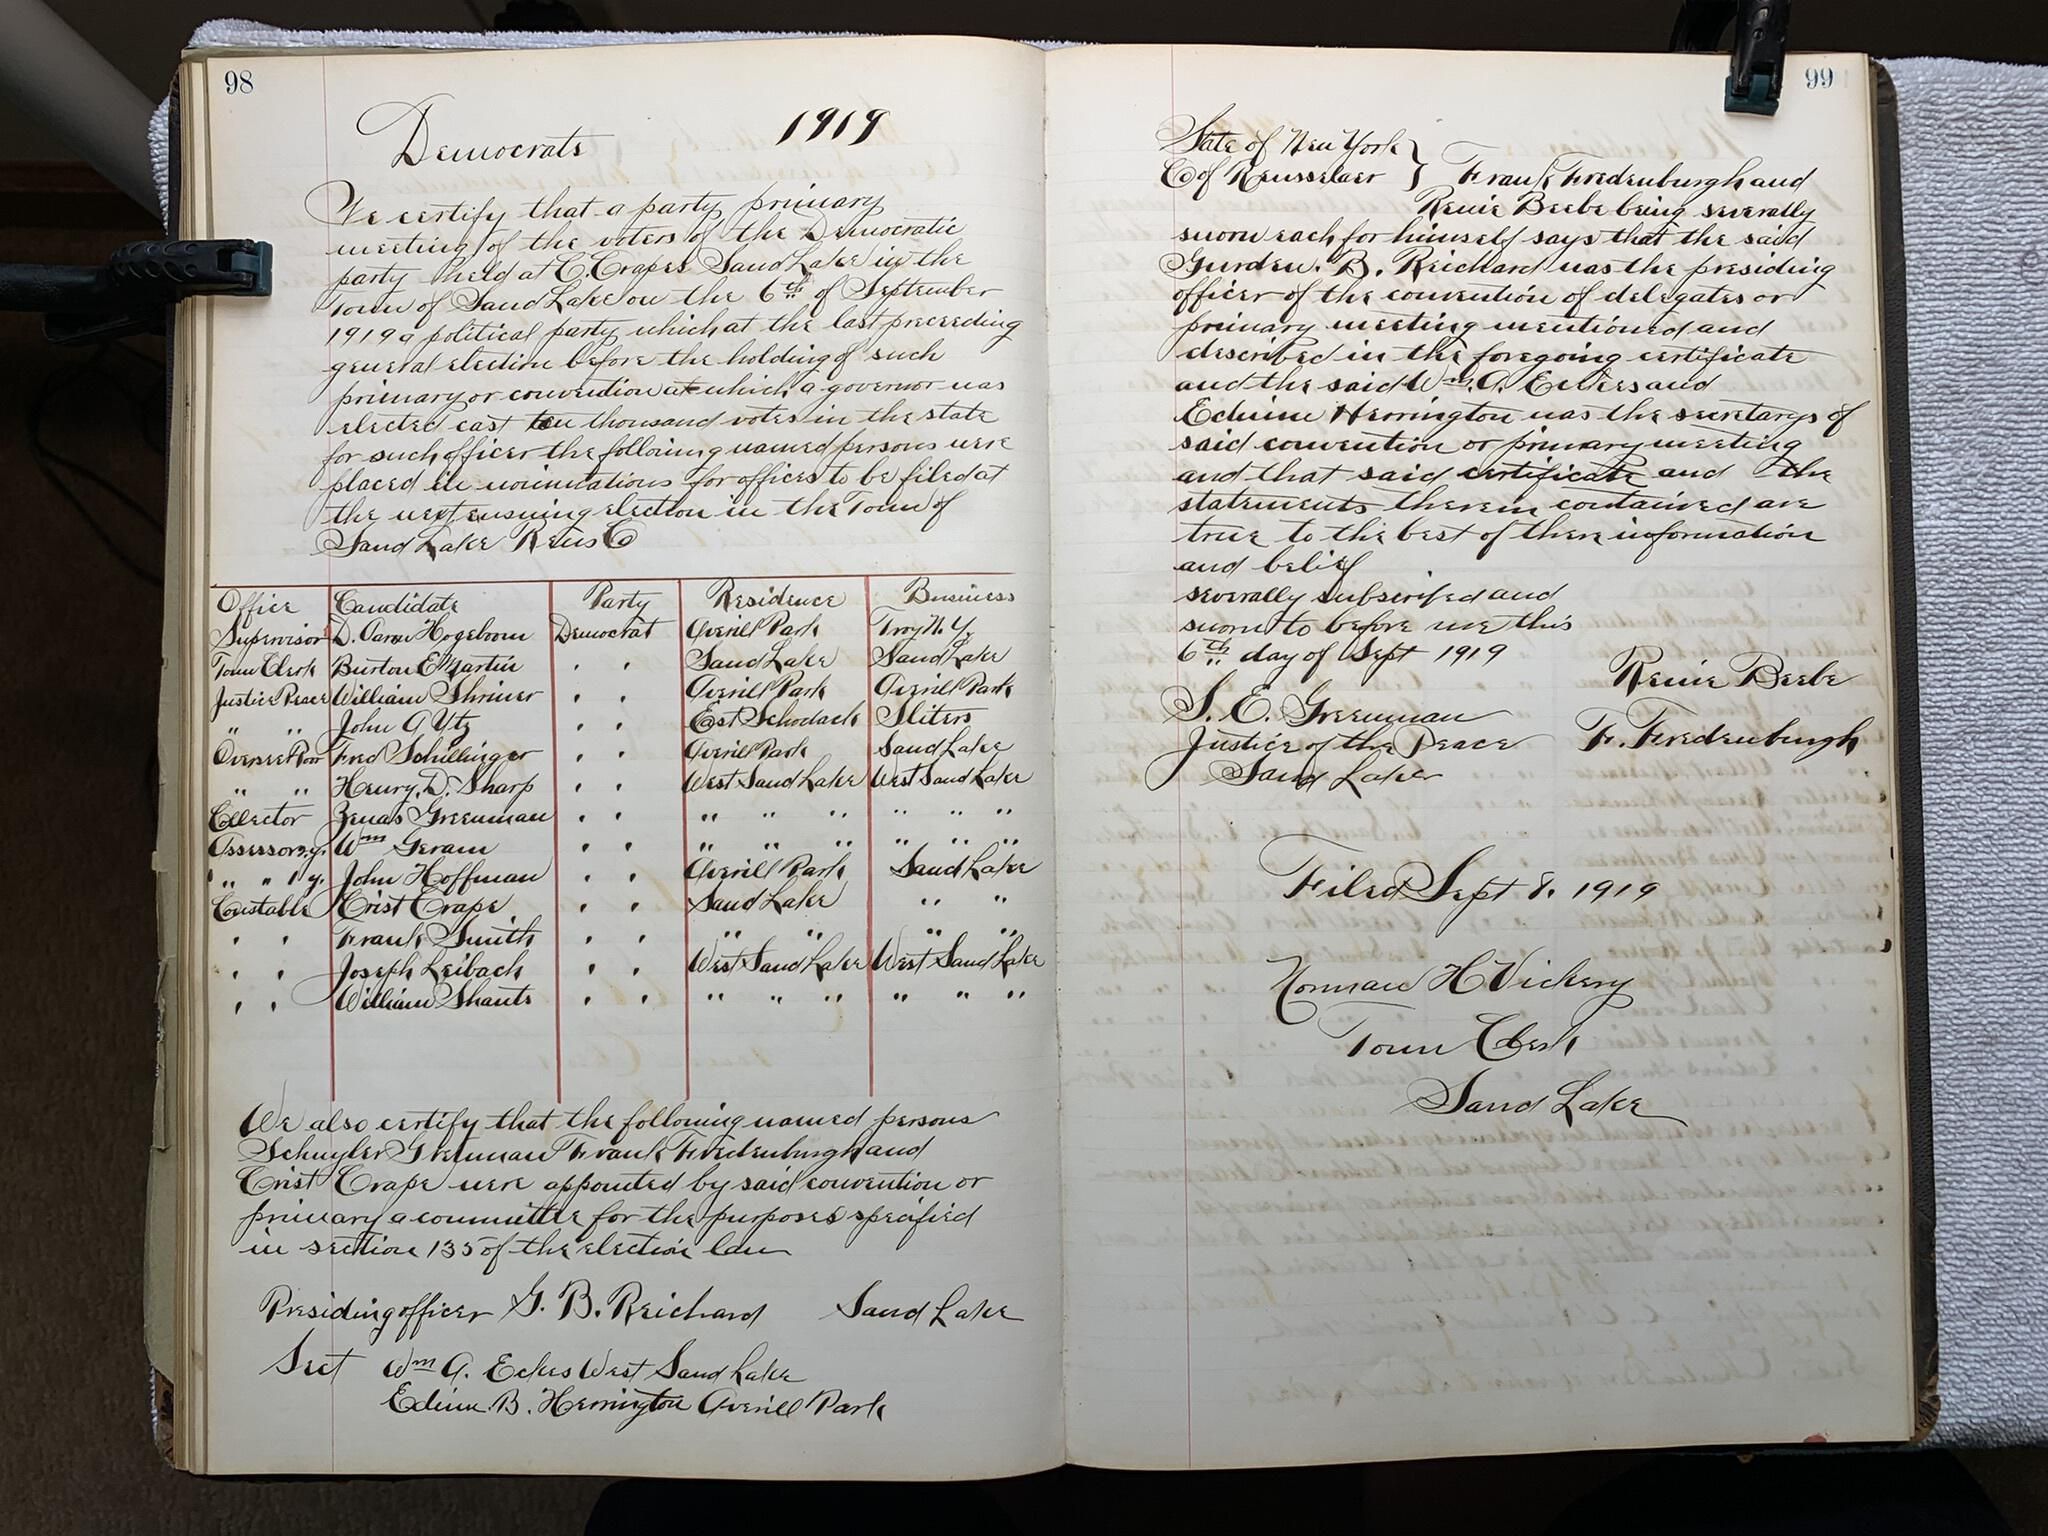 98
Democrats 1919
We certify that a party primary
meeting of the voters of the Democratic
party held at C. Crapes Sand Lake in the
Town of Sand Lake on the 6th of September
1919 a political party which at the last preceeding
general election before the holding of such
primary or convention at which a governor was
elected cast ten thousand votes in the state
for such officer the following named persons were
placed in nominations for offices to be filed at
the next ensuing election in the Town of
Sand Lake Rens Co
Office Candidate Party Residence Business
Supervisor D. Aaron Hogeboom Democrat Averill Park Troy N.Y.
Town Clerk Burton E Martin " " Sand Lake Sand Lake
Justice Peace William Shriner " " Averill Park Averill Park
" " John A Utz " " East Schodack Sliters
Overseer Poor Fred Schillinger " " Averill Park Sand Lake
" " Henry. D. Sharp " " West Sand Lake West Sand Lake
Collector Zenas Greenman " " " " " " " "
Assessor y. Wm Geram " " " " " " " "
" " 1 y. John Hoffman " " Averill Park Sand Lake
Constable Crist Crape " " Sand Lake " "
" " Frank Smith " " " " " "
" " Joseph Leibach " " West Sand Lake West Sand Lake
" " William Shants " " " " " " " "
We also certify that the following named persons
Schuyler Greenman Frank Fredenburgh and
Crist Crape were appointed by said convention or
primary a committe for the purposes specified
in section 135 of the election law
Presiding officer G. B. Reichard Sand Lake
Sect Wm A. Eckes West Sand Lake
Edwin. B. Herrington Averill Park
99
State of New York }
Co of Rensselaer } Frank Fredenburgh and
Renie Beebe being severally
sworn each for himself says that the said
Gurden. B. Reichard was the presiding
officer of the convention of delegates or
primary meeting mentioned and
described in the foregoing certificate
and the said Wm. A. Eckes and
Edwine Herrington was the secretarys of
said convention or primary meeting
and that said certificate and the
statements therein contained are
true to the best of there information
and belief
severally subscribed and
sworn to before me this
6th day of Sept 1919
Renie Beebe
S. E. Greenman
F. Fredenburgh
Justice of the Peace
Sand Lake
Filed Sept 8. 1919
Norman H Vickery
Town Clerk
Sand Lake